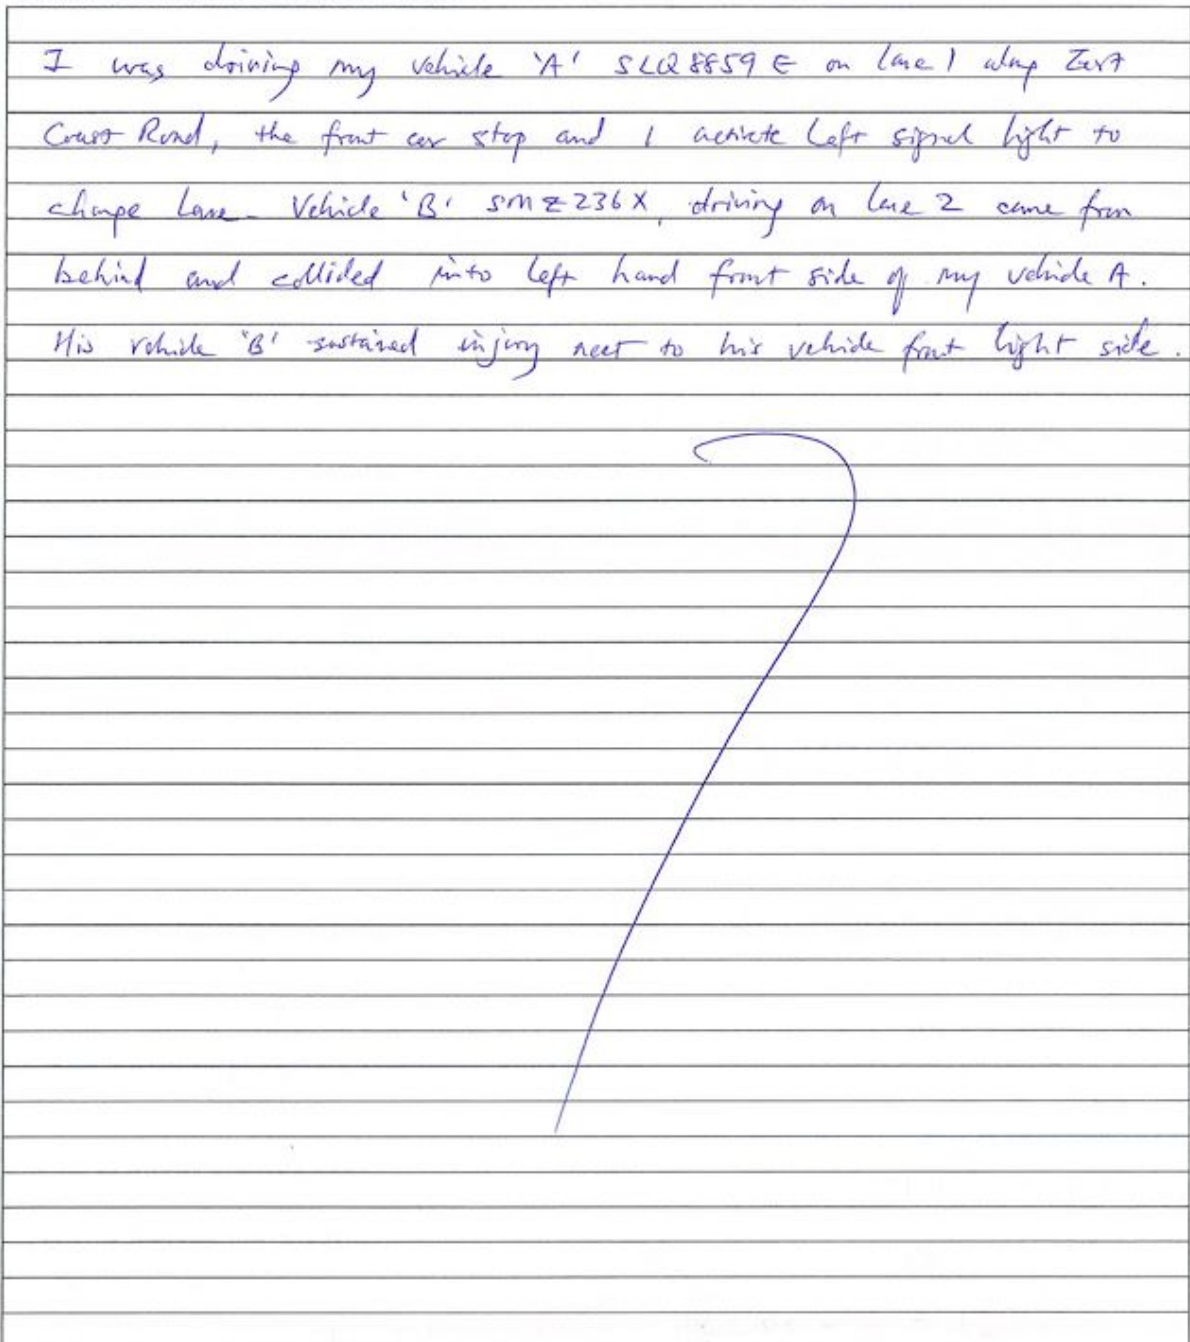 I was driving my vehicle 'A' SLQ8859E on lane 1 along East
Coast Road, the front car stop and I activate left signal light to
change lane. Vehicle 'B' SMZ236X, driving on lane 2 came from
behind and collided into left hand front side of my vehicle A.
His vehicle 'B' sustained injury next to his vehicle front light side.